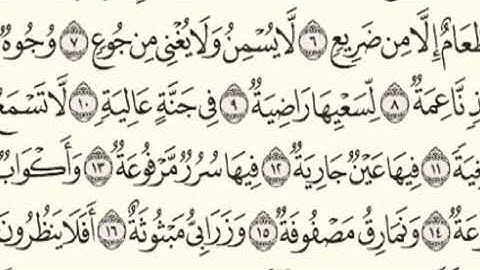 طَعَامٌ إِلَّا مِن ضَرِيعٍ ٦ لَّا يُسْمِنُ وَلَا يُغْنِى مِن جُوعٍ ٧ وُجُوهٌ
نَّاعِمَةٌ ٨ لِّسَعْيِهَا رَاضِيَةٌ ٩ فِى جَنَّةٍ عَالِيَةٍ ١٠ لَّا تَسْمَعُ
١١ فِيهَا عَيْنٌ جَارِيَةٌ ١٢ فِيهَا سُرُرٌ مَّرْفُوعَةٌ ١٣ وَأَكْوَابٌ
١٤ وَنَمَارِقُ مَصْفُوفَةٌ ١٥ وَزَرَابِىُّ مَبْثُوثَةٌ ١٦ أَفَلَا يَنظُرُونَ